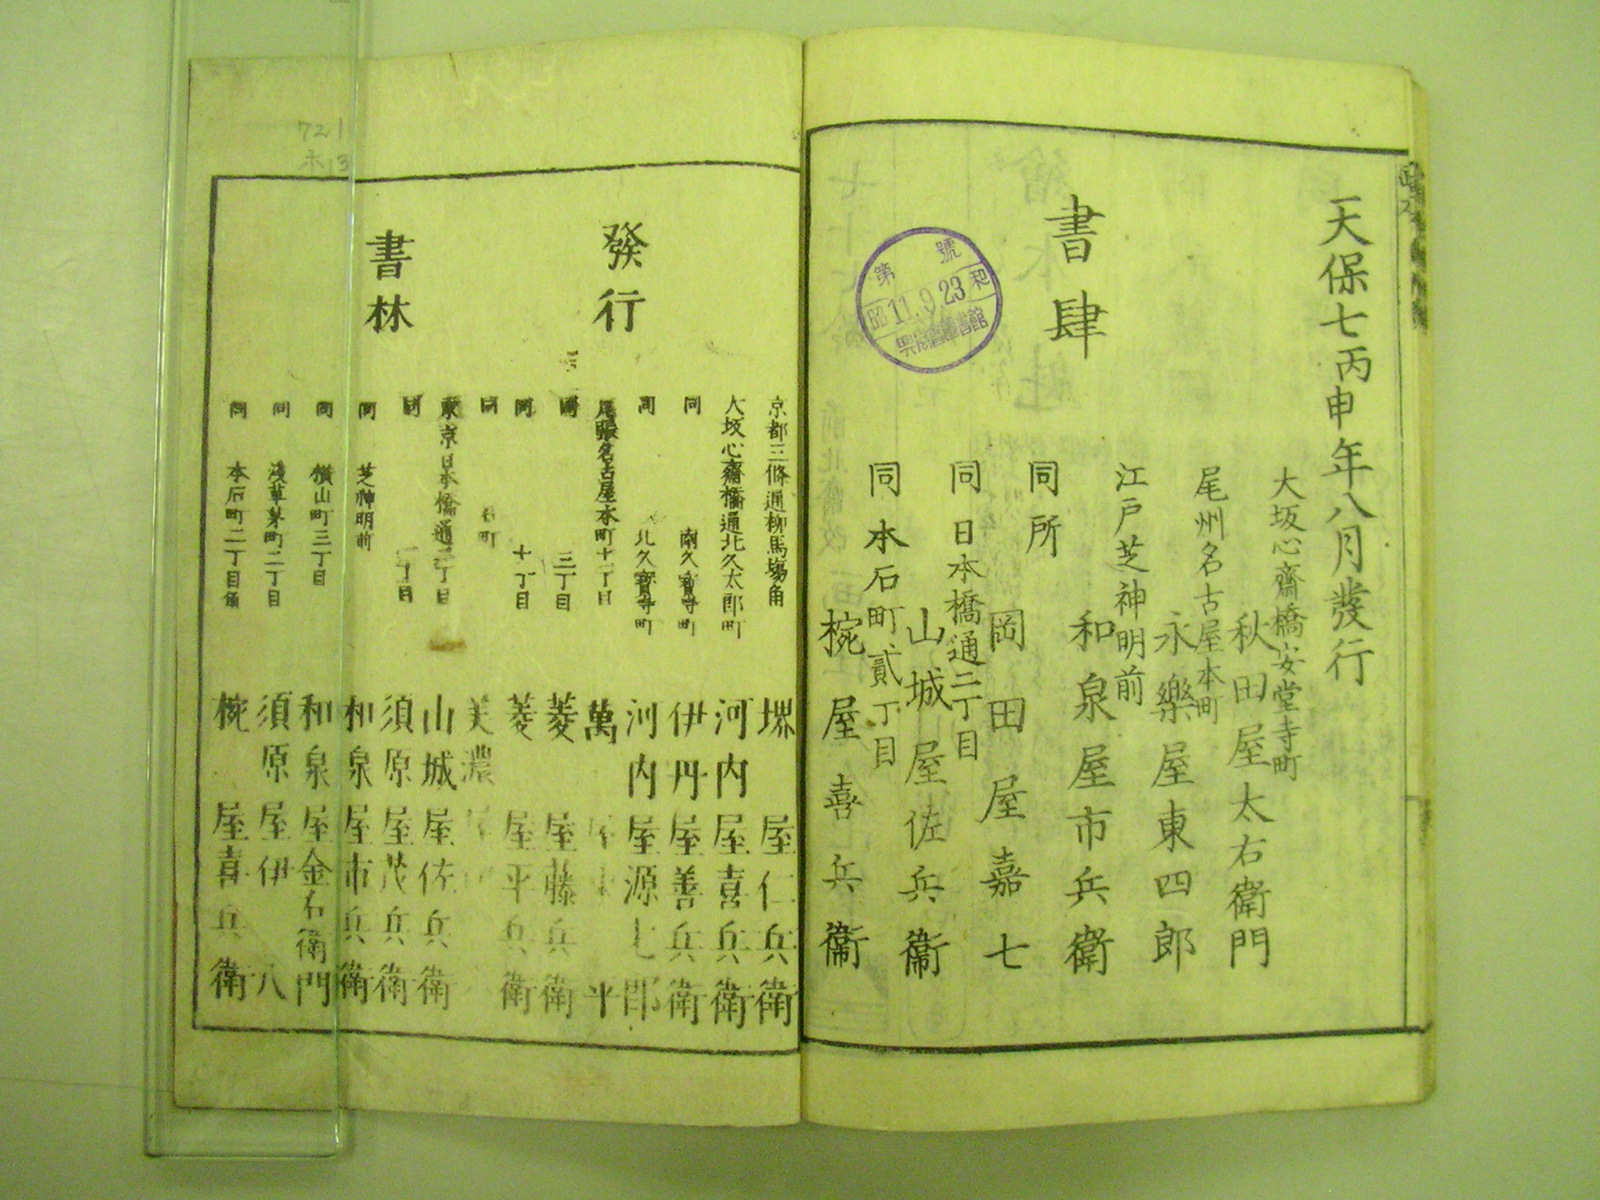 天保七丙申年八月發行
書肆
大坂心齋橋安堂寺町
秋田屋太右衛門
尾州名古屋本町
永樂屋東四郎
江戸芝神明前
和泉屋市兵衛
同所
岡田屋嘉七
同日本橋通二丁目
山城屋佐兵衞
同本石町貳丁目
椀屋喜兵衞
第 號
昭和 11.9.23
發行
書林
京都三條通柳馬塲角
堺屋仁兵衛
大坂心齋橋通北久太郎町
河内屋喜兵衛
同 南久寶寺町
伊丹屋善兵衛
同 北久寶寺町
河内屋源七郎
尾張名古屋本町十一丁目
萬 平
同 三丁目
菱屋藤兵衛
同 十丁目
菱屋平兵衛
同 町
美濃
東京日本橋通二丁目
山城屋佐兵衛
同 丁目
須原屋茂兵衛
同 芝神明前
和泉屋市兵衛
同 横山町三丁目
和泉屋金右衛門
同 淺草茅町二丁目
須原屋伊八
同 本石町二丁目角
椀屋喜兵衛
721
ホ13